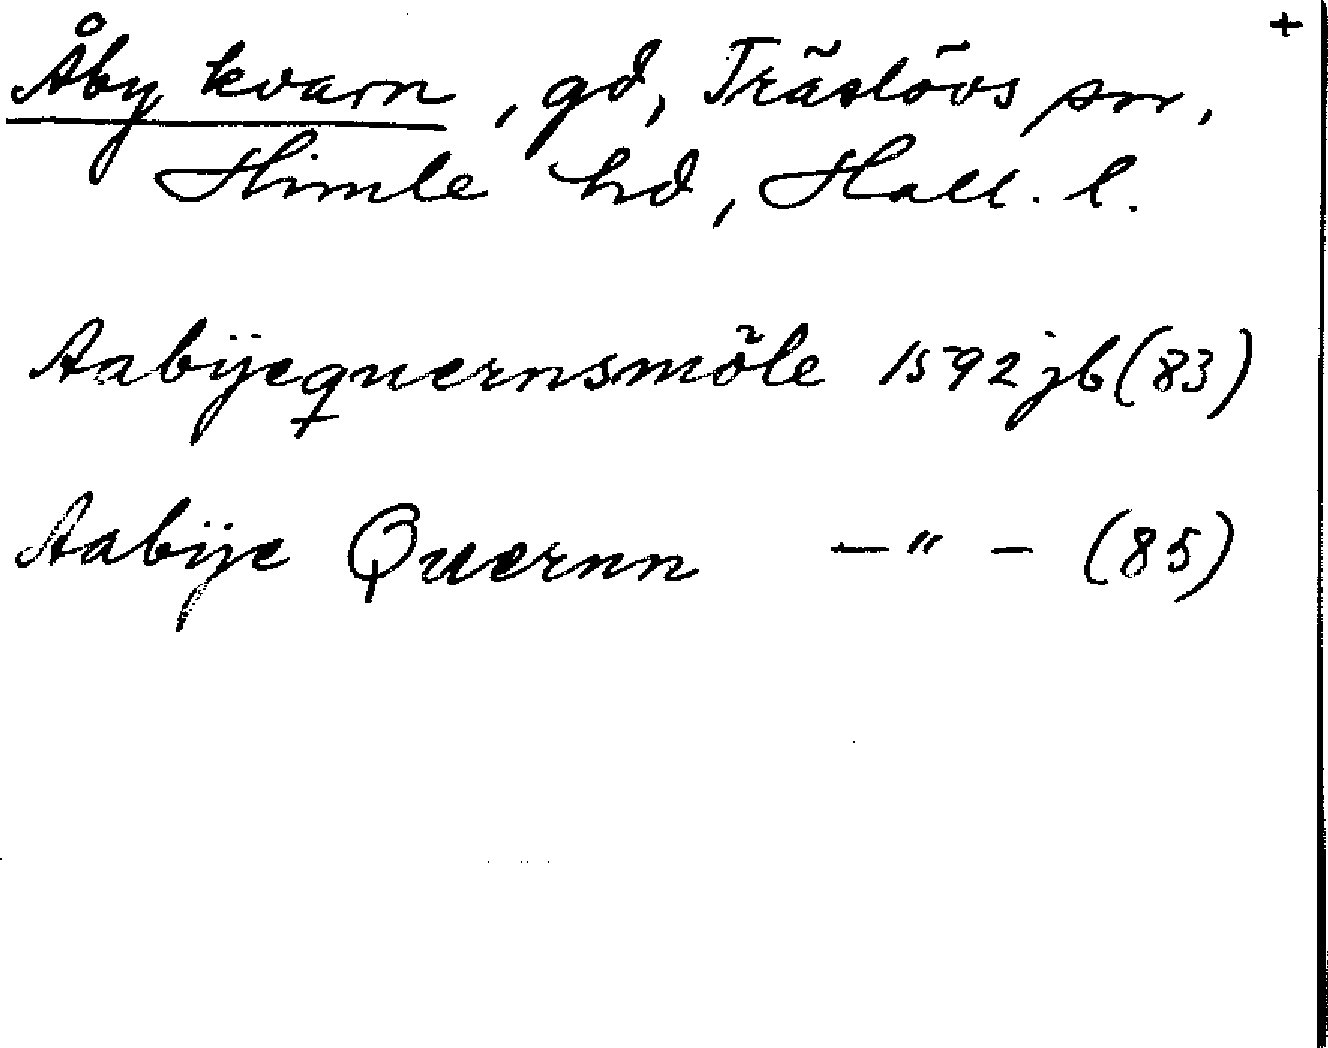 +
Åby kvarn, gd, Träslövs sn,
Himle hd, Hall. l.
Aabÿequernsmöle 1592 jb (83)
Aabÿe Quernn —"— (85)